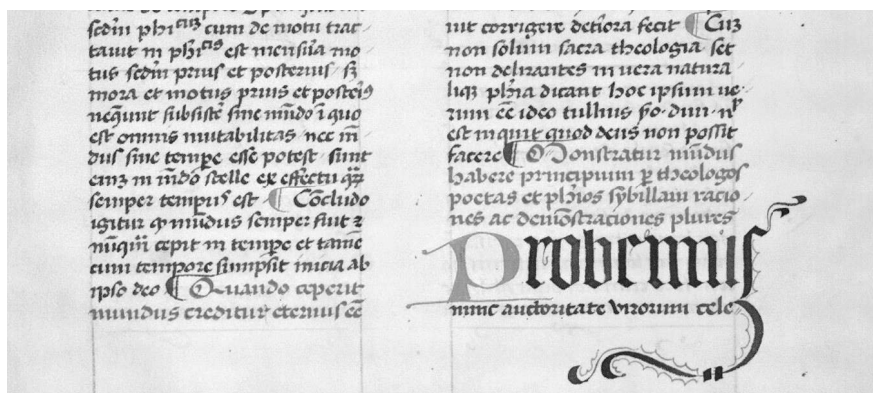 scd̄m ph̄icuȝ cum de motu trac
tauit in ph̄icis est mensura mo
tus scd̄m prius et posterius sȝ
mora et motus prius et posteriꝰ
nequeunt subsiste sine mūdo ī quo
est omnis mutabilitas nec mū
dus sine tempe esse potest sunt
enȝ in mūdo stelle ex effectu
semper tempus est ¶ Concludo
igitur ꝙ mūdus semper fuit ⁊
nūqm̄ cepit in tempe et tamē
cum tempore sumpsit inicia ab
ipso deo ¶ Quando ceperit
mundus creditur eternus eē
uit corrigere detiora fecit ¶ Cuȝ
non solum sacra theologia set
non delirantes in uera natura
liqȝ ph̄ia dicant hoc ipsum ue
rum eē ideo tullius
est inquit quod deus non possit
facere ¶ Monstratur mūdus
habere principium ꝑ theologos
poetas et ph̄os sybillam racio
nes ac demōstraciones plures
Probemus
nunc auctoritate virorum cele